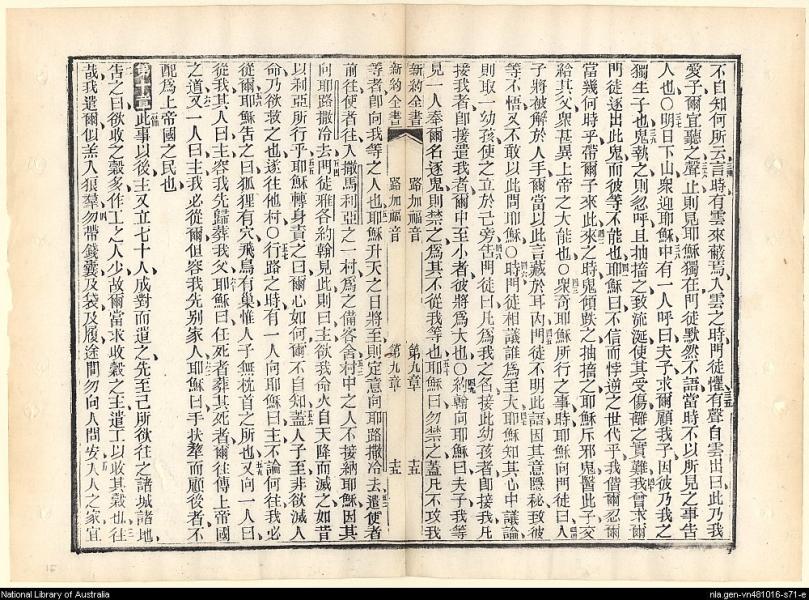 不自知何所云言時有雲來蔽焉入雲之時門徒懼有聲自雲出曰此乃我
愛子爾宜聽之聲止則見耶穌獨在門徒默然不語當時不以所見之事告
人也○明日下山衆迎耶穌中有一人呼曰夫子求爾顧我子因彼乃我之
獨生子也鬼執之則忽呼且抽搐之致流涎使其受傷難之實難我曾求爾
門徒逐出此鬼而彼等不能也耶穌曰不信而悖逆之世代乎我偕爾忍爾
當幾何時乎帶爾子來此來之時鬼傾跌之抽搐之耶穌斥邪鬼醫此子交
給其父衆甚異上帝之大能也○衆奇耶穌所行之事時耶穌向門徒曰人
子將被解於人手爾當以此言藏於耳內門徒不明此語因其意隱秘致彼
等不悟又不敢以此問耶穌○時門徒相議誰爲至大耶穌知其心中議論
則取一幼孩使之立於己旁古門徒曰凡爲我之名接此幼孩者卽接我凡
接我者卽接遣我者爾中至小者彼將爲大也○約翰向耶穌曰夫子我等
見一人奉爾名逐鬼則禁之爲其不從我等也耶穌曰勿禁之蓋凡不攻我
新約全書 路加福音 第九章 十五
新約全書 路加福音 第九章 十五
等者卽向我等之人也耶穌升天之日將至則定意向耶路撒冷去遣使者
前往使者往入撒馬利亞之一村爲之備客舍村中之人不接納耶穌因其
向耶路撒冷去門徒雅各約翰見此則曰主欲我命火自天降而滅之如昔
以利亞所行乎耶穌轉身責之曰爾心如何爾不自知蓋人子至非欲滅人
命乃欲救之也遂往他村○行路之時有一人向耶穌曰主不論何往我必
從爾耶穌告之曰狐狸有穴飛鳥有巢惟人子無枕首之所也又向一人曰
從我其人曰主容我先歸葬我父耶穌曰任死者葬其死者爾往傳上帝國
之道又一人曰主我必從爾但容我先别家人耶穌曰手扶犂而顧後者不
配爲上帝國之民也
第十章此事以後主又立七十人成對而遣之先至己所欲往之諸城諸地
告之曰欲收之穀多作工之人少故爾當求收穀之主遣工以收其穀也往
哉我遣爾似羔入狼羣勿帶錢囊及袋及履途間勿向人問安入人之家宜
National Library of Australia
nla.gen-vn481016-s71-e